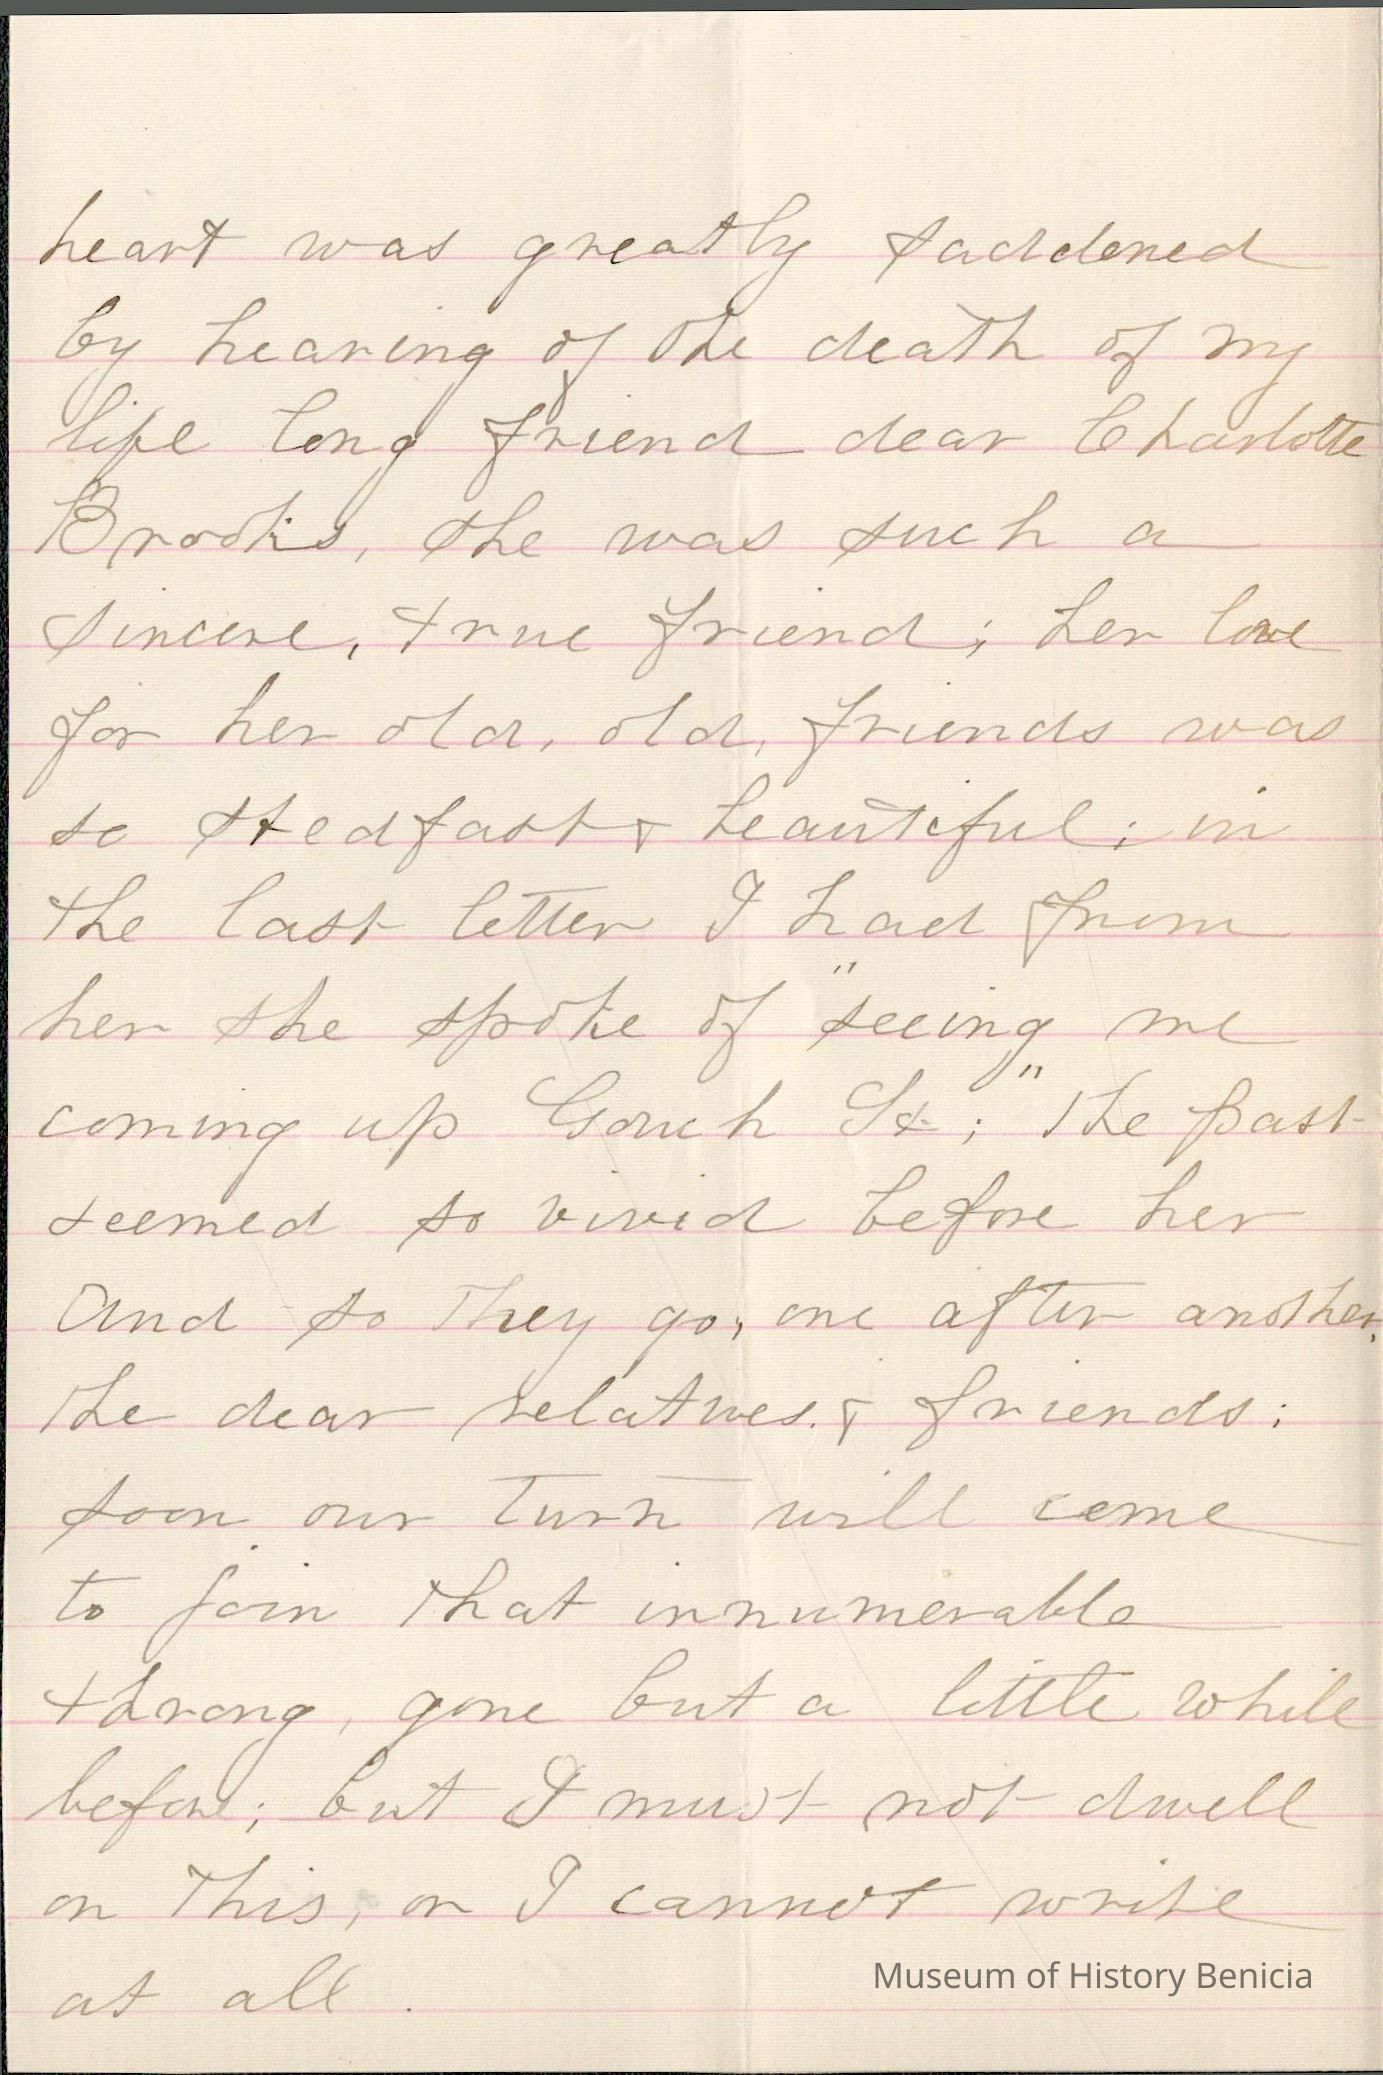 heart was greatly saddened
by hearing of the death of my
life long friend dear Charlotte
Brooks, she was such a
sincere, true friend; her love
for her old, old, friends was
so stedfast & beautiful; in
the last letter I had from
her she spoke of "seeing me
coming up Gouch St;" the past
seemed so vivid before her
And so they go, one after another,
the dear relatives. & friends;
soon our turn will come
to join that innumerable
throng, gone but a little while
before; but I must not dwell
on this, or I cannot write
at all.
Museum of History Benicia